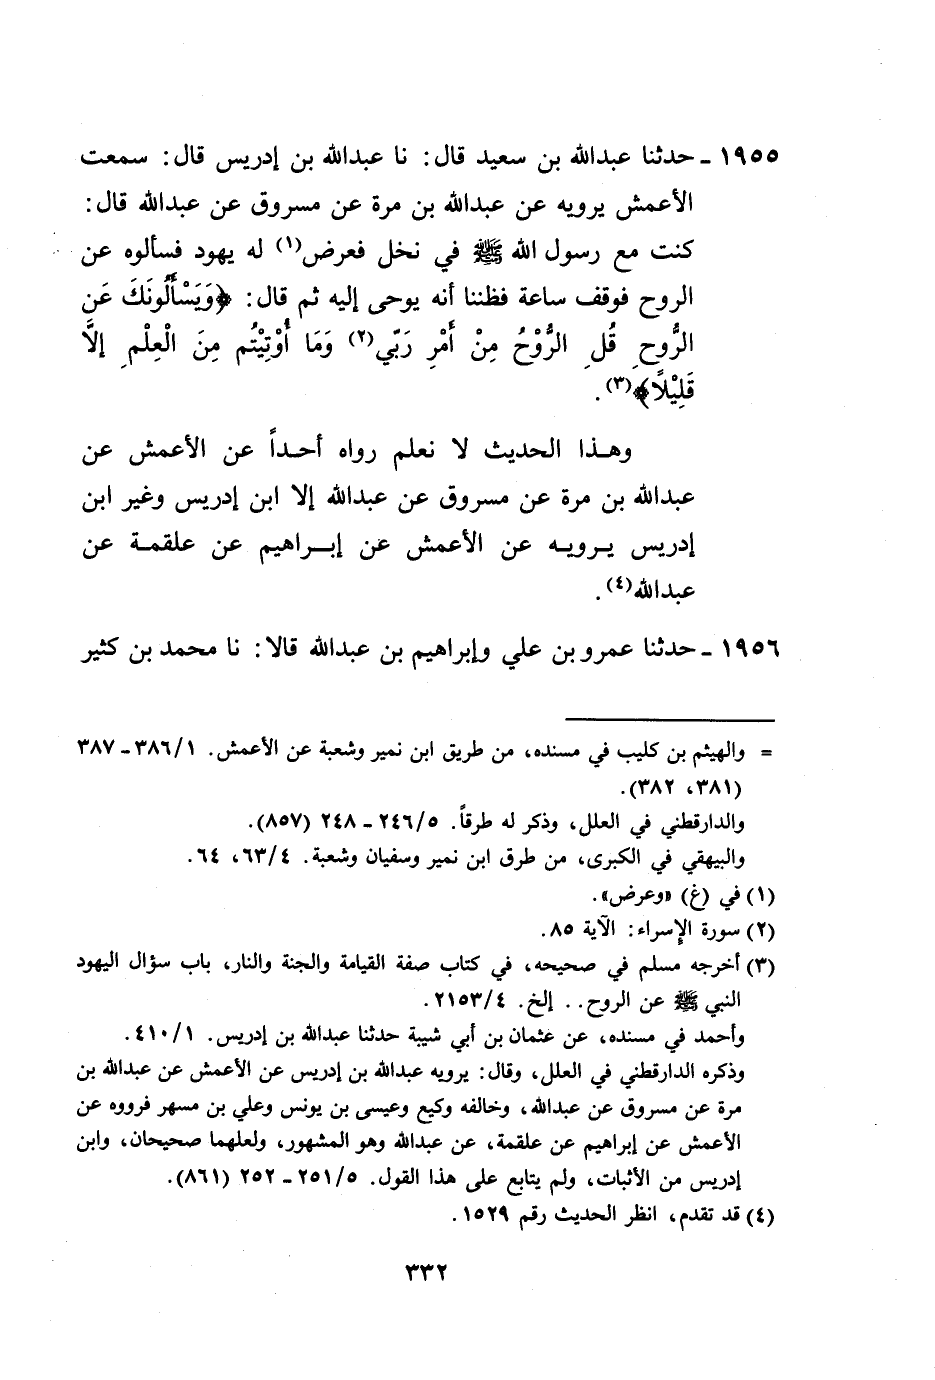 ١٩٥٥ - حدثنا عبدالله بن سعيد قال: نا عبدالله بن إدريس قال: سمعت
الأعمش يرويه عن عبدالله بن مرة عن مسروق عن عبدالله قال:
كنت مع رسول الله ﷺ في نخل فعرض(١) له يهود فسألوه عن
الروح فوقف ساعة فظننا أنه يوحى إليه ثم قال: ﴿وَيَسْأَلُونَكَ عَنِ
الرُّوحِ قُلِ الرُّوْحُ مِنْ أَمْرِ رَبّي(٢) وَمَا أُوْتِيْتُم مِنَ الْعِلْمِ إلاَّ
قَلِيْلًا﴾(٣).
وهـذا الحديث لا نعلم رواه أحـداً عن الأعمش عن
عبدالله بن مرة عن مسروق عن عبدالله إلا ابن إدريس وغير ابن
إدريس يـرويـه عن الأعمش عن إبـراهيم عن علقمـة عن
عبدالله(٤).
١٩٥٦ - حدثنا عمرو بن علي وإبراهيم بن عبدالله قالا: نا محمد بن كثير
= والهيثم بن كليب في مسنده، من طريق ابن نمير وشعبة عن الأعمش. ٣٨٦/١ - ٣٨٧
(٣٨١، ٣٨٢).
والدارقطني في العلل، وذكر له طرقاً. ٢٤٦/٥ - ٢٤٨ (٨٥٧).
والبيهقي في الكبرى، من طرق ابن نمير وسفيان وشعبة. ٦٣/٤، ٦٤.
(١) في (غ) «وعرض».
(٢) سورة الإسراء: الآية ٨٥.
(٣) أخرجه مسلم في صحيحه، في كتاب صفة القيامة والجنة والنار، باب سؤال اليهود
النبي ﷺ عن الروح.. إلخ. ٢١٥٣/٤.
وأحمد في مسنده، عن عثمان بن أبي شيبة حدثنا عبدالله بن إدريس. ٤١٠/١.
وذكره الدارقطني في العلل، وقال: يرويه عبدالله بن إدريس عن الأعمش عن عبدالله بن
مرة عن مسروق عن عبدالله، وخالفه وكيع وعيسى بن يونس وعلي بن مسهر فرووه عن
الأعمش عن إبراهيم عن علقمة، عن عبدالله وهو المشهور، ولعلهما صحيحان، وابن
إدريس من الأثبات، ولم يتابع على هذا القول. ٢٥١/٥ - ٢٥٢ (٨٦١).
(٤) قد تقدم، انظر الحديث رقم ١٥٢٩.
٣٣٢